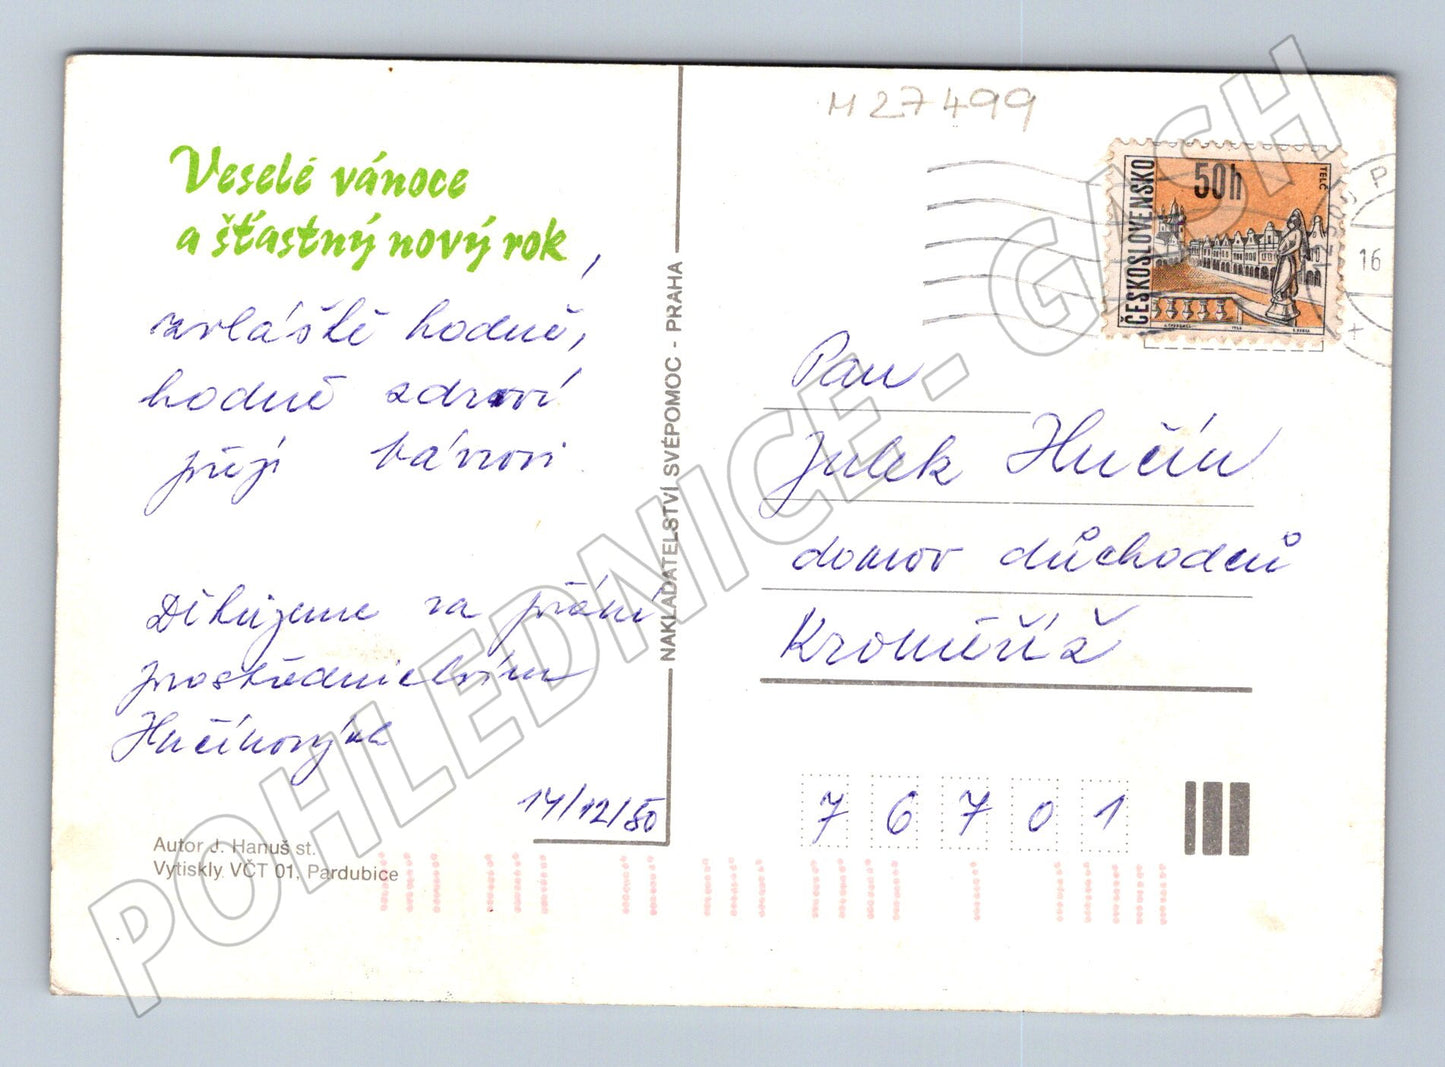 M27499
Veselé vánoce
a šťastný nový rok,
zvláště hodně,
hodně zdraví
přejí
Děkujeme za přání
prostřednictvím
Hučínových
14/12/80
Autor J. Hanuš st.
Vytiskly VČT 01, Pardubice
NAKLADATELSTVÍ SVÉPOMOC - PRAHA
ČESKOSLOVENSKO
50h
TELČ
16
Pan
Julek Hučín
domov důchodců
Kroměříž
76701
POHLEDNICE - GASH